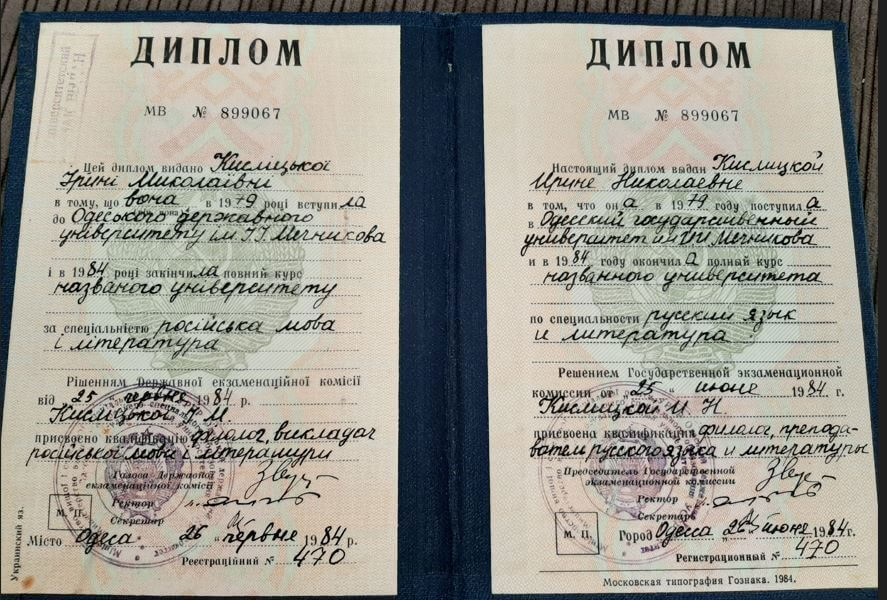 ДИПЛОМ
МВ № 899067
Цей диплом видано Кисліцької
Ірині Миколаївні
в тому, що вона в 1979 році вступила
до Одеського державного
університету ім. І.І. Мечникова
і в 1984 році закінчила повний курс
названого університету
за спеціальністю російська мова
і література
Рішенням Державної екзаменаційної комісії
від 25 червня 1984 р.
Кисліцької І. М.
присвоєно кваліфікацію філолог, викладач
російської мови і літератури
Голова Державної
екзаменаційної комісії
Ректор
Секретар
М. П.
Місто Одеса 26 червня 1984 р.
Реєстраційний № 470
Украинский яз.
ДИПЛОМ
МВ № 899067
Настоящий диплом выдан Кислицкой
Ирине Николаевне
в том, что она в 1979 году поступила
в Одесский государственный
университет им. И.И. Мечникова
и в 1984 году окончила полный курс
названного университета
по специальности русский язык
и литература
Решением Государственной экзаменационной
комиссии от „25" июня 1984 г.
Кислицкой И. Н.
присвоена квалификация филолог, препода-
ватель русского языка и литературы
Председатель Государственной
экзаменационной комиссии
Ректор
Секретарь
М. П.
Город Одесса „26" июня 1984 г.
Регистрационный № 470
Московская типография Гознака. 1984.